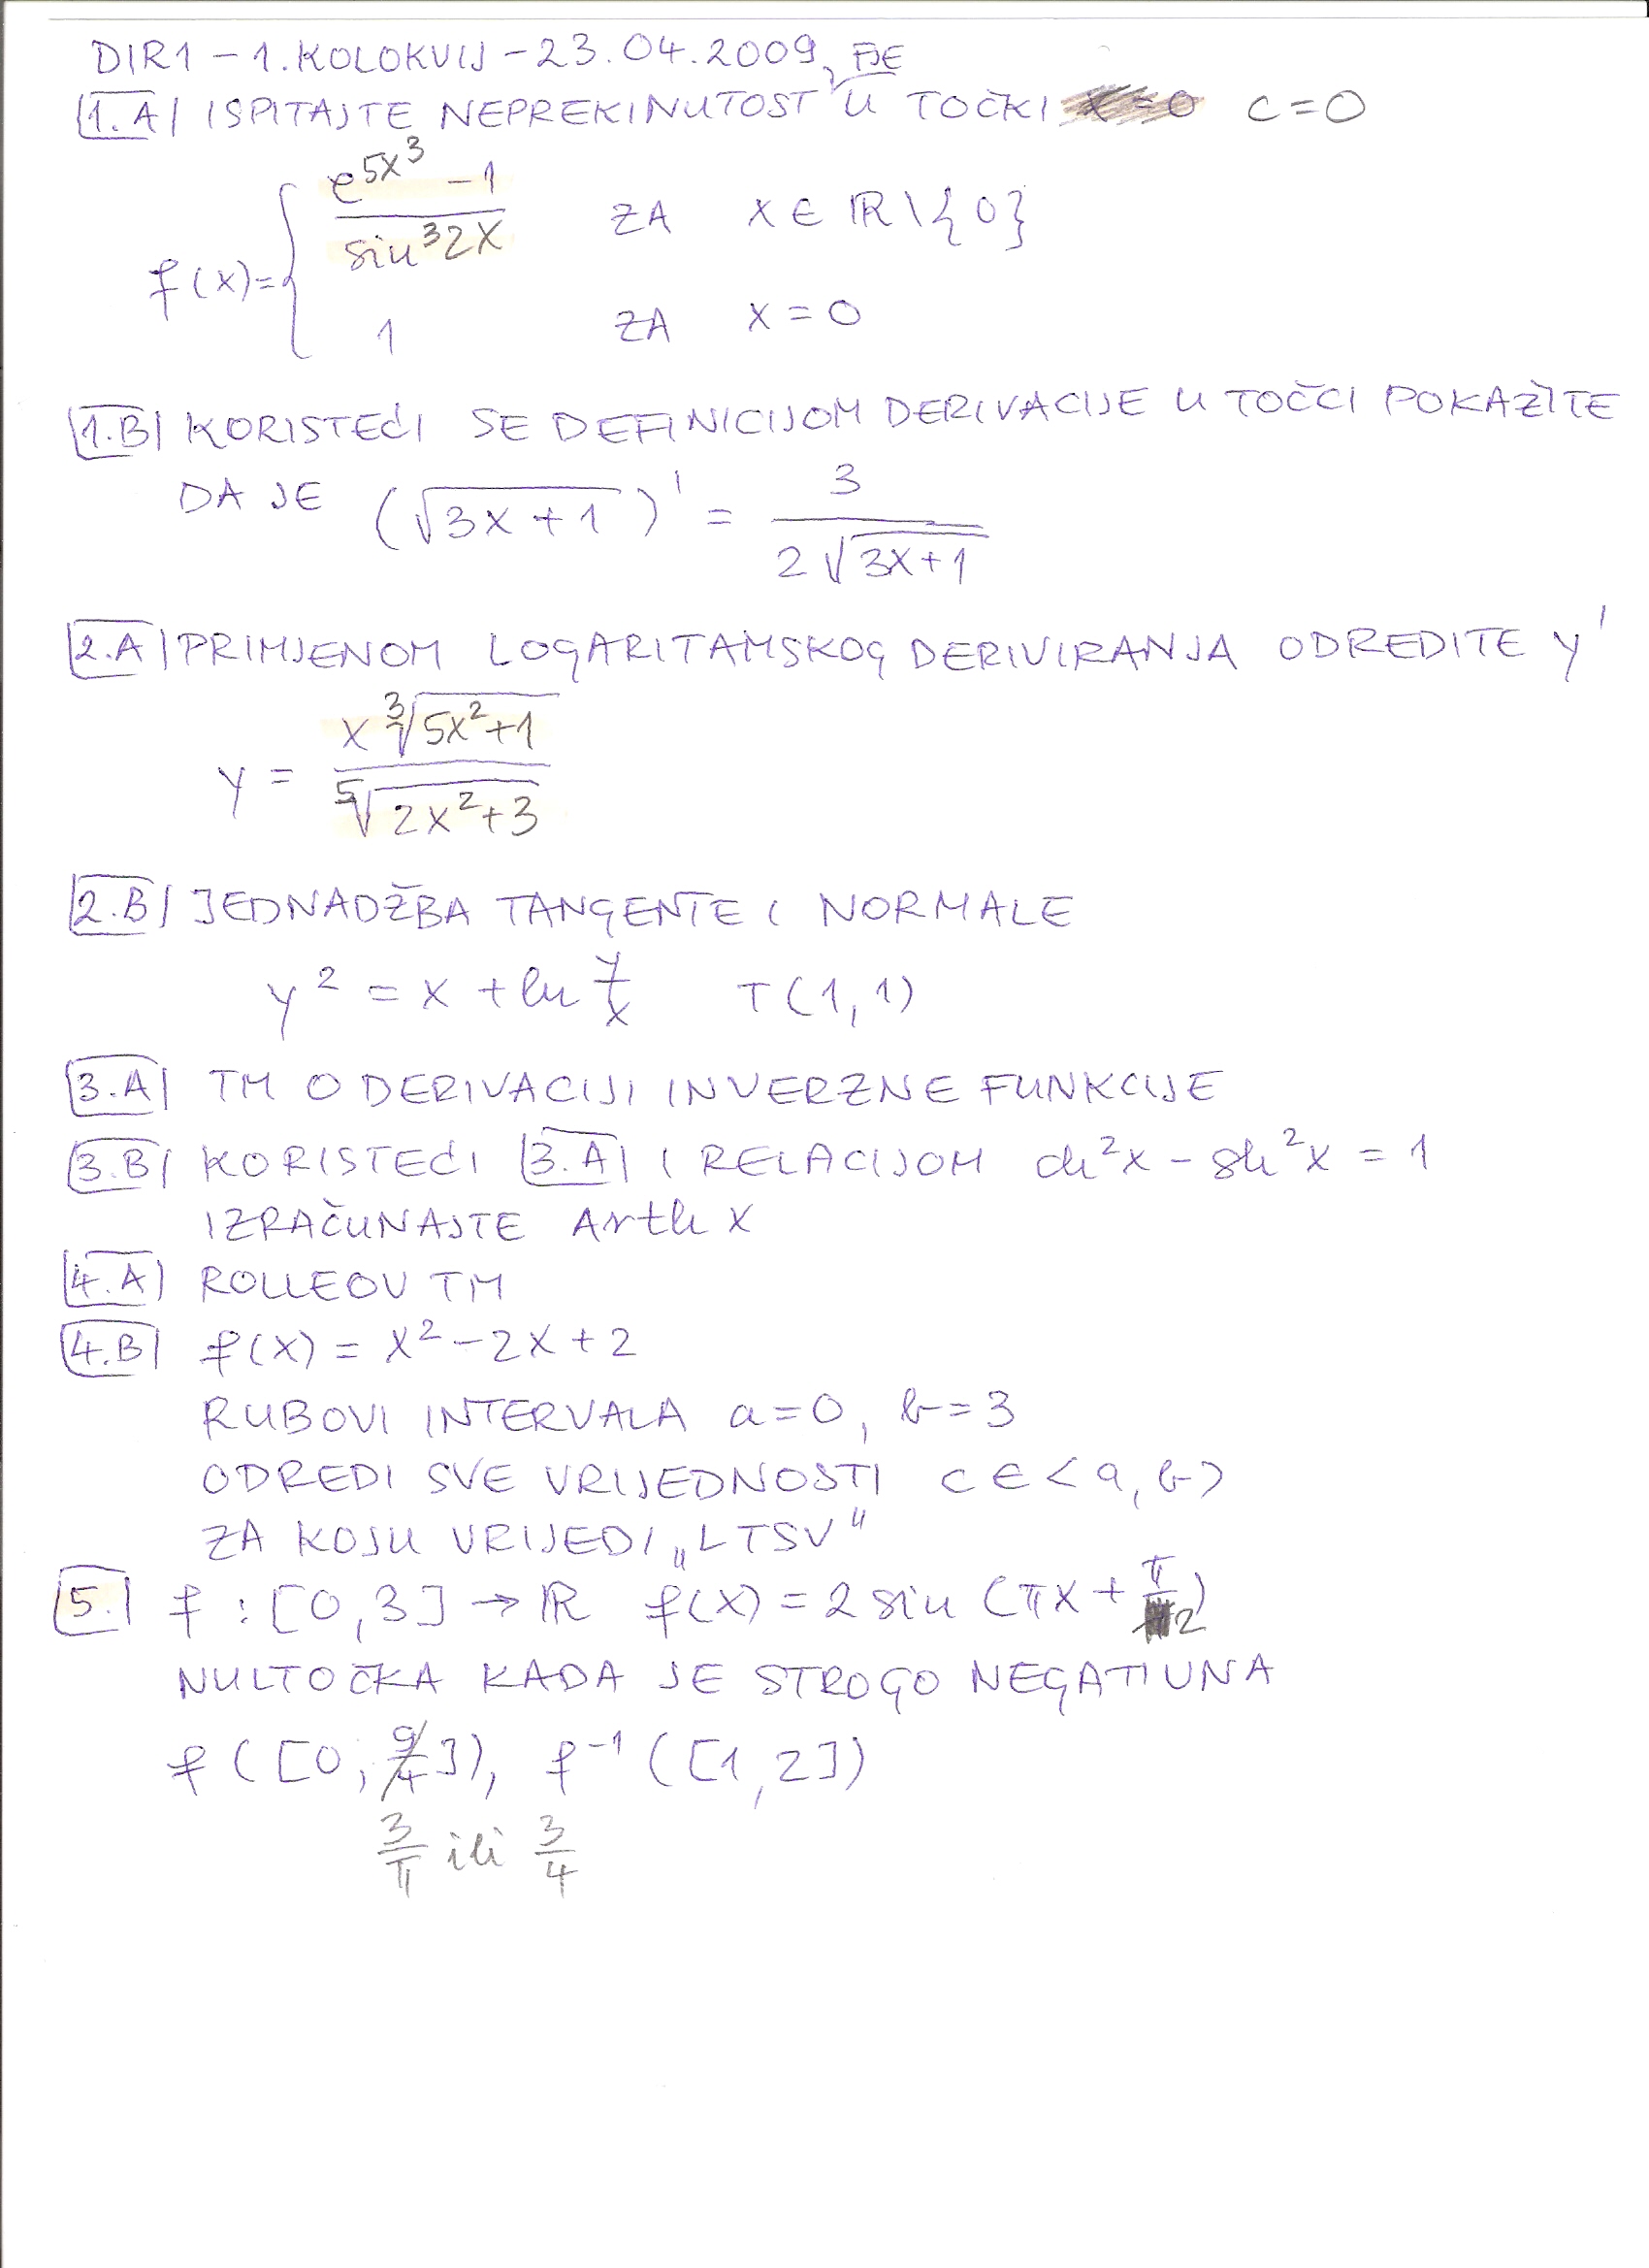 DIR1 – 1. KOLOKVIJ – 23.04.2009
FJE
1.A ISPITAJTE NEPREKINUTOST U TOČKI c=0
f(x)= { (e^{5x^3} - 1) / (sin^3 2x) ZA x ∈ ℝ \ {0}
1 ZA x = 0
1.B KORISTEĆI SE DEFINICIJOM DERIVACIJE U TOČCI POKAŽITE
DA JE (√(3x+1))' = 3 / (2√(3x+1))
2.A PRIMJENOM LOGARITAMSKOG DERIVIRANJA ODREDITE y'
y = (x ∛(5x²+1)) / (⁵√(2x²+3))
2.B JEDNADŽBA TANGENTE I NORMALE
y² = x + ln y/x T(1,1)
3.A TM O DERIVACIJI INVERZNE FUNKCIJE
3.B KORISTEĆI 3.A I RELACIJOM ch²x – sh²x = 1
IZRAČUNAJTE Arth x
4.A ROLLEOV TM
4.B f(x) = x² – 2x + 2
RUBOVI INTERVALA a=0, b=3
ODREDI SVE VRIJEDNOSTI c ∈ <a, b>
ZA KOJU VRIJEDI „LTSV"
5. f : [0,3] → ℝ f(x) = 2 sin (πx + π/2)
NULTOČKA KADA JE STROGO NEGATIVNA
f([0, 9/4]), f⁻¹([1,2])
3/π ili 3/4